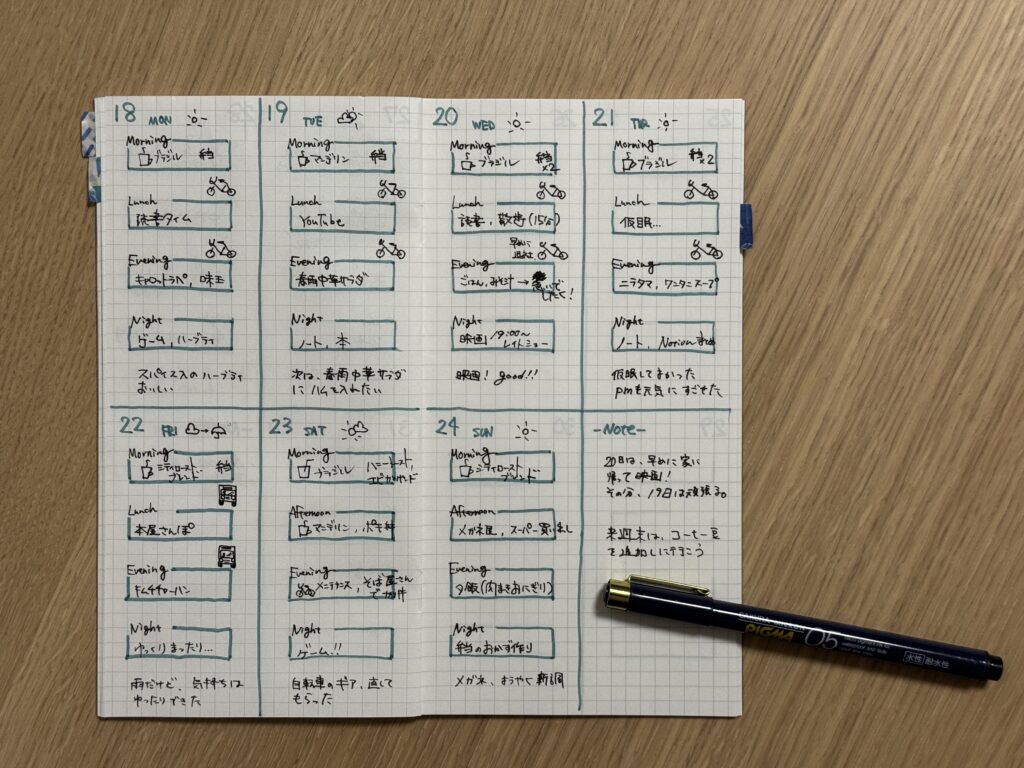 18 MON
Morning
ブラジル 弁
Lunch
読書タイム
Evening
キャロットラペ, 味玉
Night
ゲーム, ハーブティ
スパイス入のハーブティ
おいしい
19 TUE
Morning
マンデリン 弁
Lunch
YouTube
Evening
春雨中華サラダ
Night
ノート, 本
次は、春雨中華サラダ
にハムを入れたい
20 WED
Morning
ブラジル 弁
×2
Lunch
読書, 散歩(15分)
早めに
退社
Evening
ごはん, みそ汁 → 急いで
したく!
Night
映画 19:00〜
レイトショー
映画! good!!
21 THR
Morning
ブラジル 弁
×2
Lunch
仮眠…
Evening
ニラタマ, ワンタンスープ
Night
ノート, Notionまとめ
仮眠してよかった
pmも元気にすごせた
22 FRI
Morning
シティロースト 弁
ブレンド
Lunch
本屋さんぽ
Evening
キムチチャーハン
Night
ゆっくりまったり…
雨だけど、気持ちは
ゆったりできた
23 SAT
Morning
ブラジル ハニートースト,
エビカツサンド
Afternoon
マンデリン, ポキ丼
Evening
メンテナンス, そば屋さん
でカツ丼
Night
ゲーム!!
自転車のギア、直して
もらった
24 SUN
Morning
シティロースト
ブレンド
Afternoon
メガネ屋, スーパー買い出し
Evening
夕飯(肉まきおにぎり)
Night
弁当のおかず作り
メガネ、ようやく新調
-Note-
20日は、早めに家に
帰って映画!
その分、19日は頑張る。
来週末は、コーヒー豆
を追加しに行こう
PIGMA 05
水性 耐水性